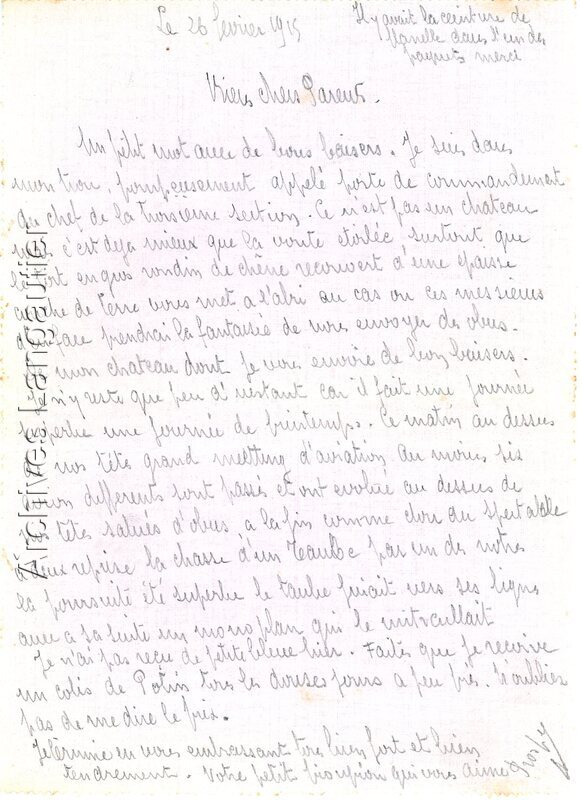 Le 26 février 1915
Il y avait la ceinture de
flanelle dans l'un des
paquets merci
Biens chers Parents.
Un petit mot avec de bons baisers. Je suis dans
mon trou, pompeusement appelé poste de commandement
du chef de la troisième section. Ce n'est pas un chateau
mais c'est deja mieux que la voute etoilée surtout que
le toit en gros rondin de chêne recouvert d'une epaisse
couche de terre vous met a l'abri au cas ou ces messieurs
d'en face prendrai la fantaisie de nous envoyer des obus.
mon chateau dont je vous envoie de bons baisers.
n'y reste que peu d'instant car il fait une journée
superbe une journée de printemps. Ce matin au dessus
nos têtes grand meeting d'aviation. Au moins six
avions differents sont passés et ont evolué au dessus de
nos têtes salués d'obus a la fin comme clou du spectable
reprise la chasse d'un Taube par un des notres
la poursuite été superbe le taube fuiait vers ses lignes
avec a sa suite un monoplan qui le mitraillait
Je n'ai pas recu de petite bleue hier. Faites que je recoive
un colis de Potin tous les douses jours a peu près. N'oubliez
pas de me dire le prix.
Je termine en vous embrassant tous bien fort et bien
tendrement. Votre petit pioupiou qui vous aime
Archives kangaulle